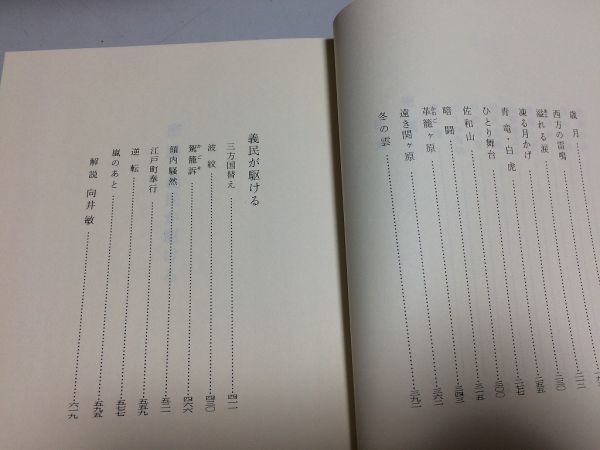 歳月
西方の雷鳴
溢れる涙 二一二
凍る月かげ 二三〇
青竜・白虎 二五五
ひとり舞台 二七七
佐和山 三〇〇
暗闘 三二五
革籠ヶ原 三四三
遠き関ヶ原 三六二
冬の雲 三九一
義民が駆ける
三方国替え 四一一
波紋 四三〇
駕籠訴 四六六
領内騒然 五二一
江戸町奉行 五五九
逆転 五七七
嵐のあと 五九五
解説 向井敏 六一九